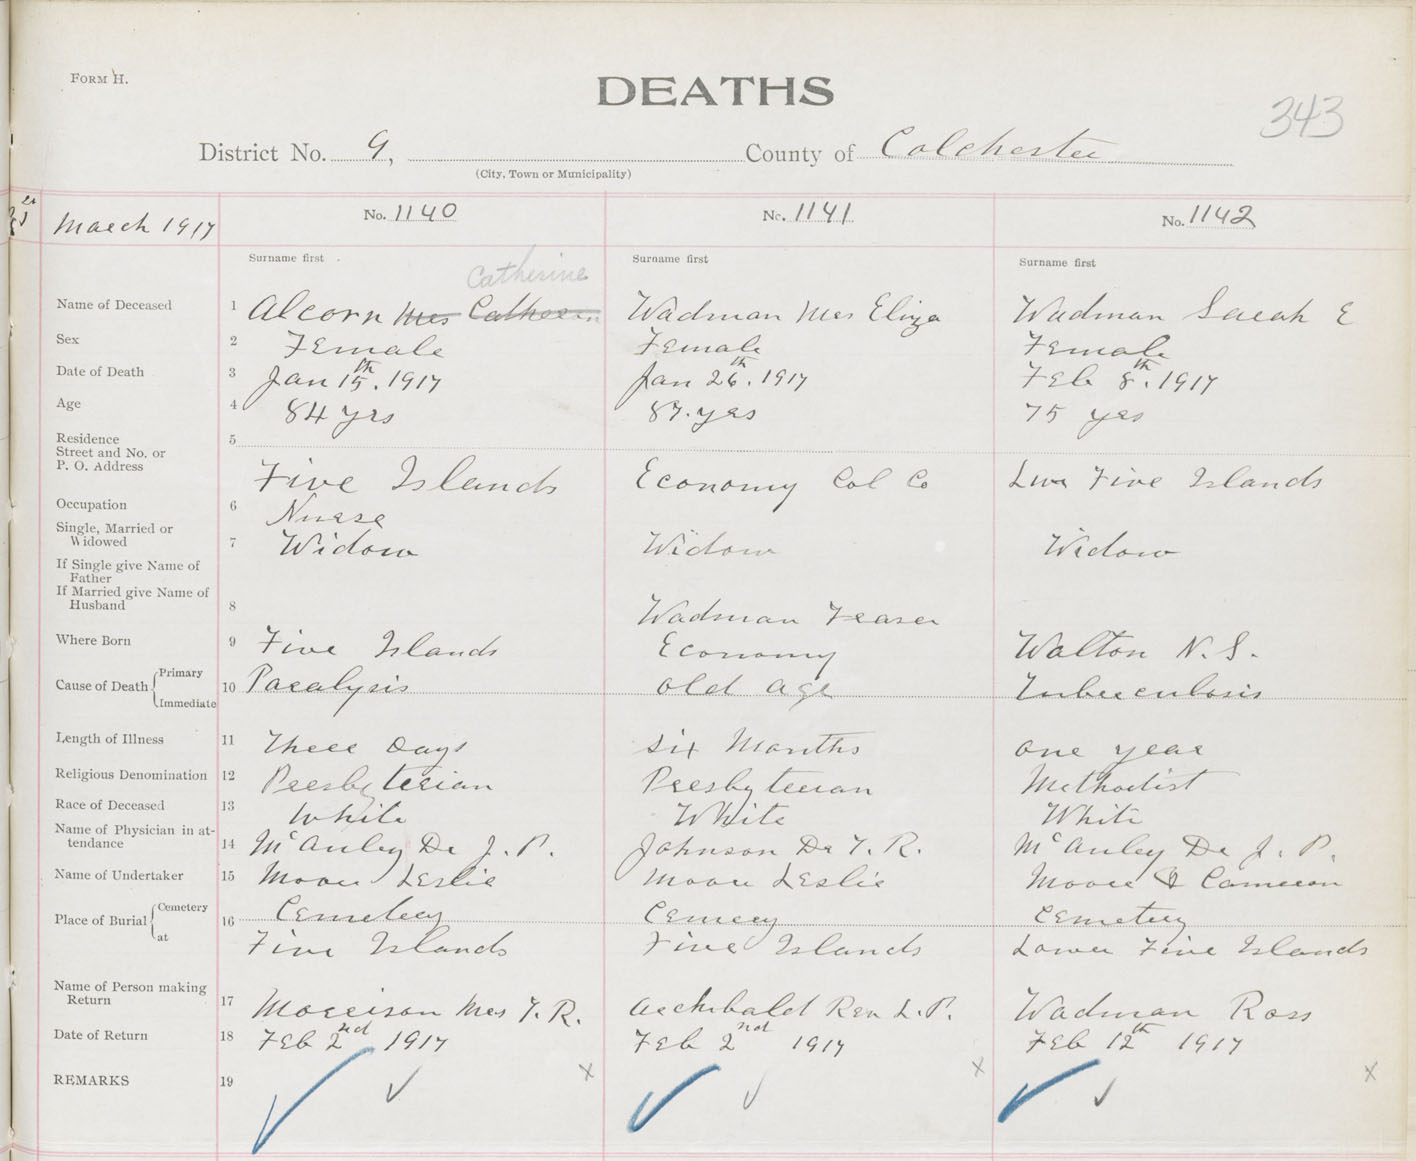 FORM H.
DEATHS
343
District No. 9, County of Colchester
(City, Town or Municipality)
March 1917
No. 1140
No. 1141
No. 1142
Surname first
Surname first
Surname first
Catherine
Name of Deceased 1 Alcorn Mrs Wadman Mrs Eliza Wadman Sarah E
Sex 2 Female Female Female
Date of Death 3 Jan 15th. 1917 Jan 26th. 1917 Feb 8th. 1917
Age 4 84 yrs 87. yrs 75 yrs
Residence 5
Street and No. or
P. O. Address Five Islands Economy Col Co Lwr Five Islands
Occupation 6 Nurse
Single, Married or
Widowed 7 Widow Widow Widow
If Single give Name of
Father
If Married give Name of
Husband 8 Wadman Fraser
Where Born 9 Five Islands Economy Walton N. S.
Cause of Death Primary
Immediate 10 Paralysis Old Age Tuberculosis
Length of Illness 11 Three Days Six Months One year
Religious Denomination 12 Presbyterian Presbyterian Methodist
Race of Deceased 13 White White White
Name of Physician in at-
tendance 14 McAuley Dr J. P. Johnson Dr T. R. McAuley Dr J. P.
Name of Undertaker 15 Moore Leslie Moore Leslie Moore & Cameron
Place of Burial Cemetery 16 Cemetery Cemery Cemetery
at Five Islands Five Islands Lower Five Islands
Name of Person making
Return 17 Morrison Mrs T. R. Archibald Rev L. P. Wadman Ross
Date of Return 18 Feb 2nd 1917 Feb 2nd 1917 Feb 12th 1917
REMARKS 19 ✓ ✓ x ✓ ✓ x ✓ ✓ x